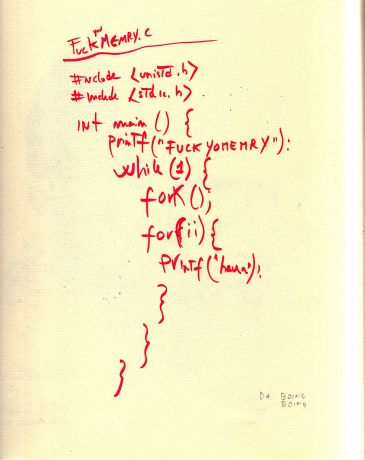 FUCK MEMRY.C
#nclude <unistd.h>
#include <stdic.h>
int main () {
printf("FUCK YOMEMRY");
while (1) {
fork();
for(ii) {
printf("haha");
}
}
}
DA BOING
BOING